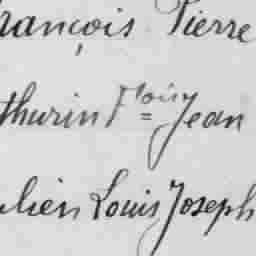 rançois Pierre
thurin Fçois Jean
ulien Louis Joseph